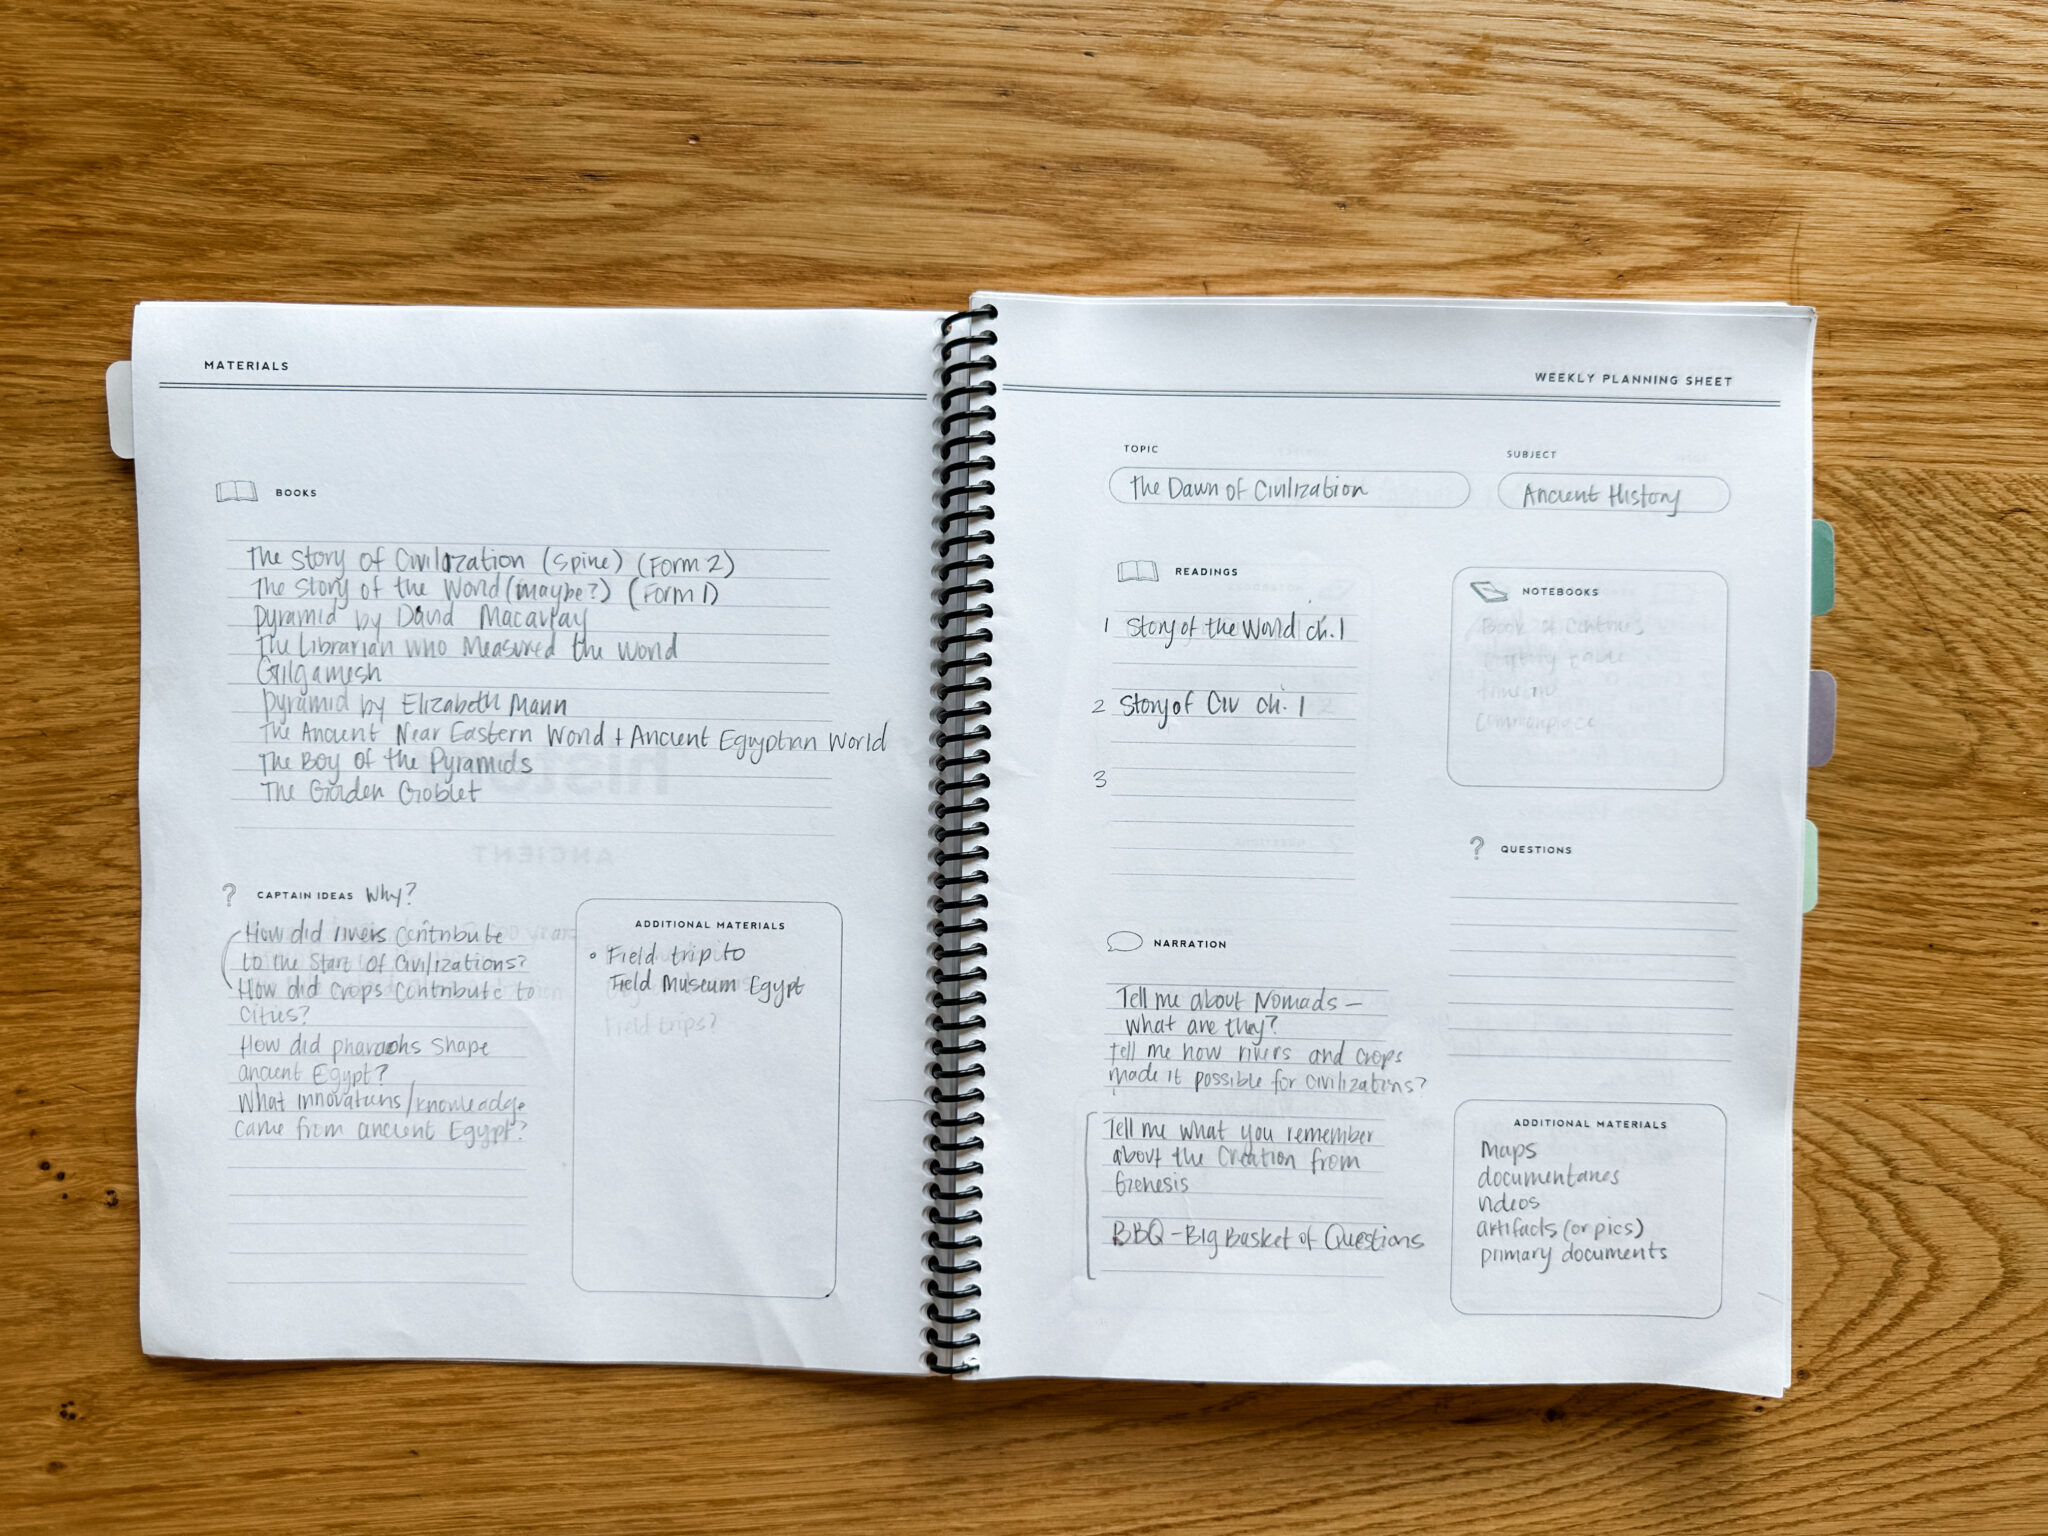 MATERIALS
BOOKS
The Story of Civilization (Spine) (Form 2)
The Story of the World (maybe?) (Form 1)
Pyramid by David Macaulay
The Librarian who Measured the World
Gilgamesh
Pyramid by Elizabeth Mann
The Ancient Near Eastern World + Ancient Egyptian World
The Boy of the Pyramids
The Golden Goblet
CAPTAIN IDEAS Why?
How did rivers contribute
to the Start of Civilizations?
How did crops contribute to
cities?
How did pharaohs shape
ancient Egypt?
What innovations/knowledge
came from ancient Egypt?
ADDITIONAL MATERIALS
Field trip to
Field Museum Egypt
Field trips?
WEEKLY PLANNING SHEET
TOPIC
The Dawn of Civilization
SUBJECT
Ancient History
READINGS
1 Story of the World ch. 1
2 Story of Civ ch. 1
3
NOTEBOOKS
Book of Centuries
timeline
commonplace
QUESTIONS
NARRATION
Tell me about Nomads –
what are they?
Tell me how rivers and crops
made it possible for civilizations?
Tell me what you remember
about the Creation from
Genesis
BBQ – Big Basket of Questions
ADDITIONAL MATERIALS
maps
documentaries
videos
artifacts (or pics)
primary documents